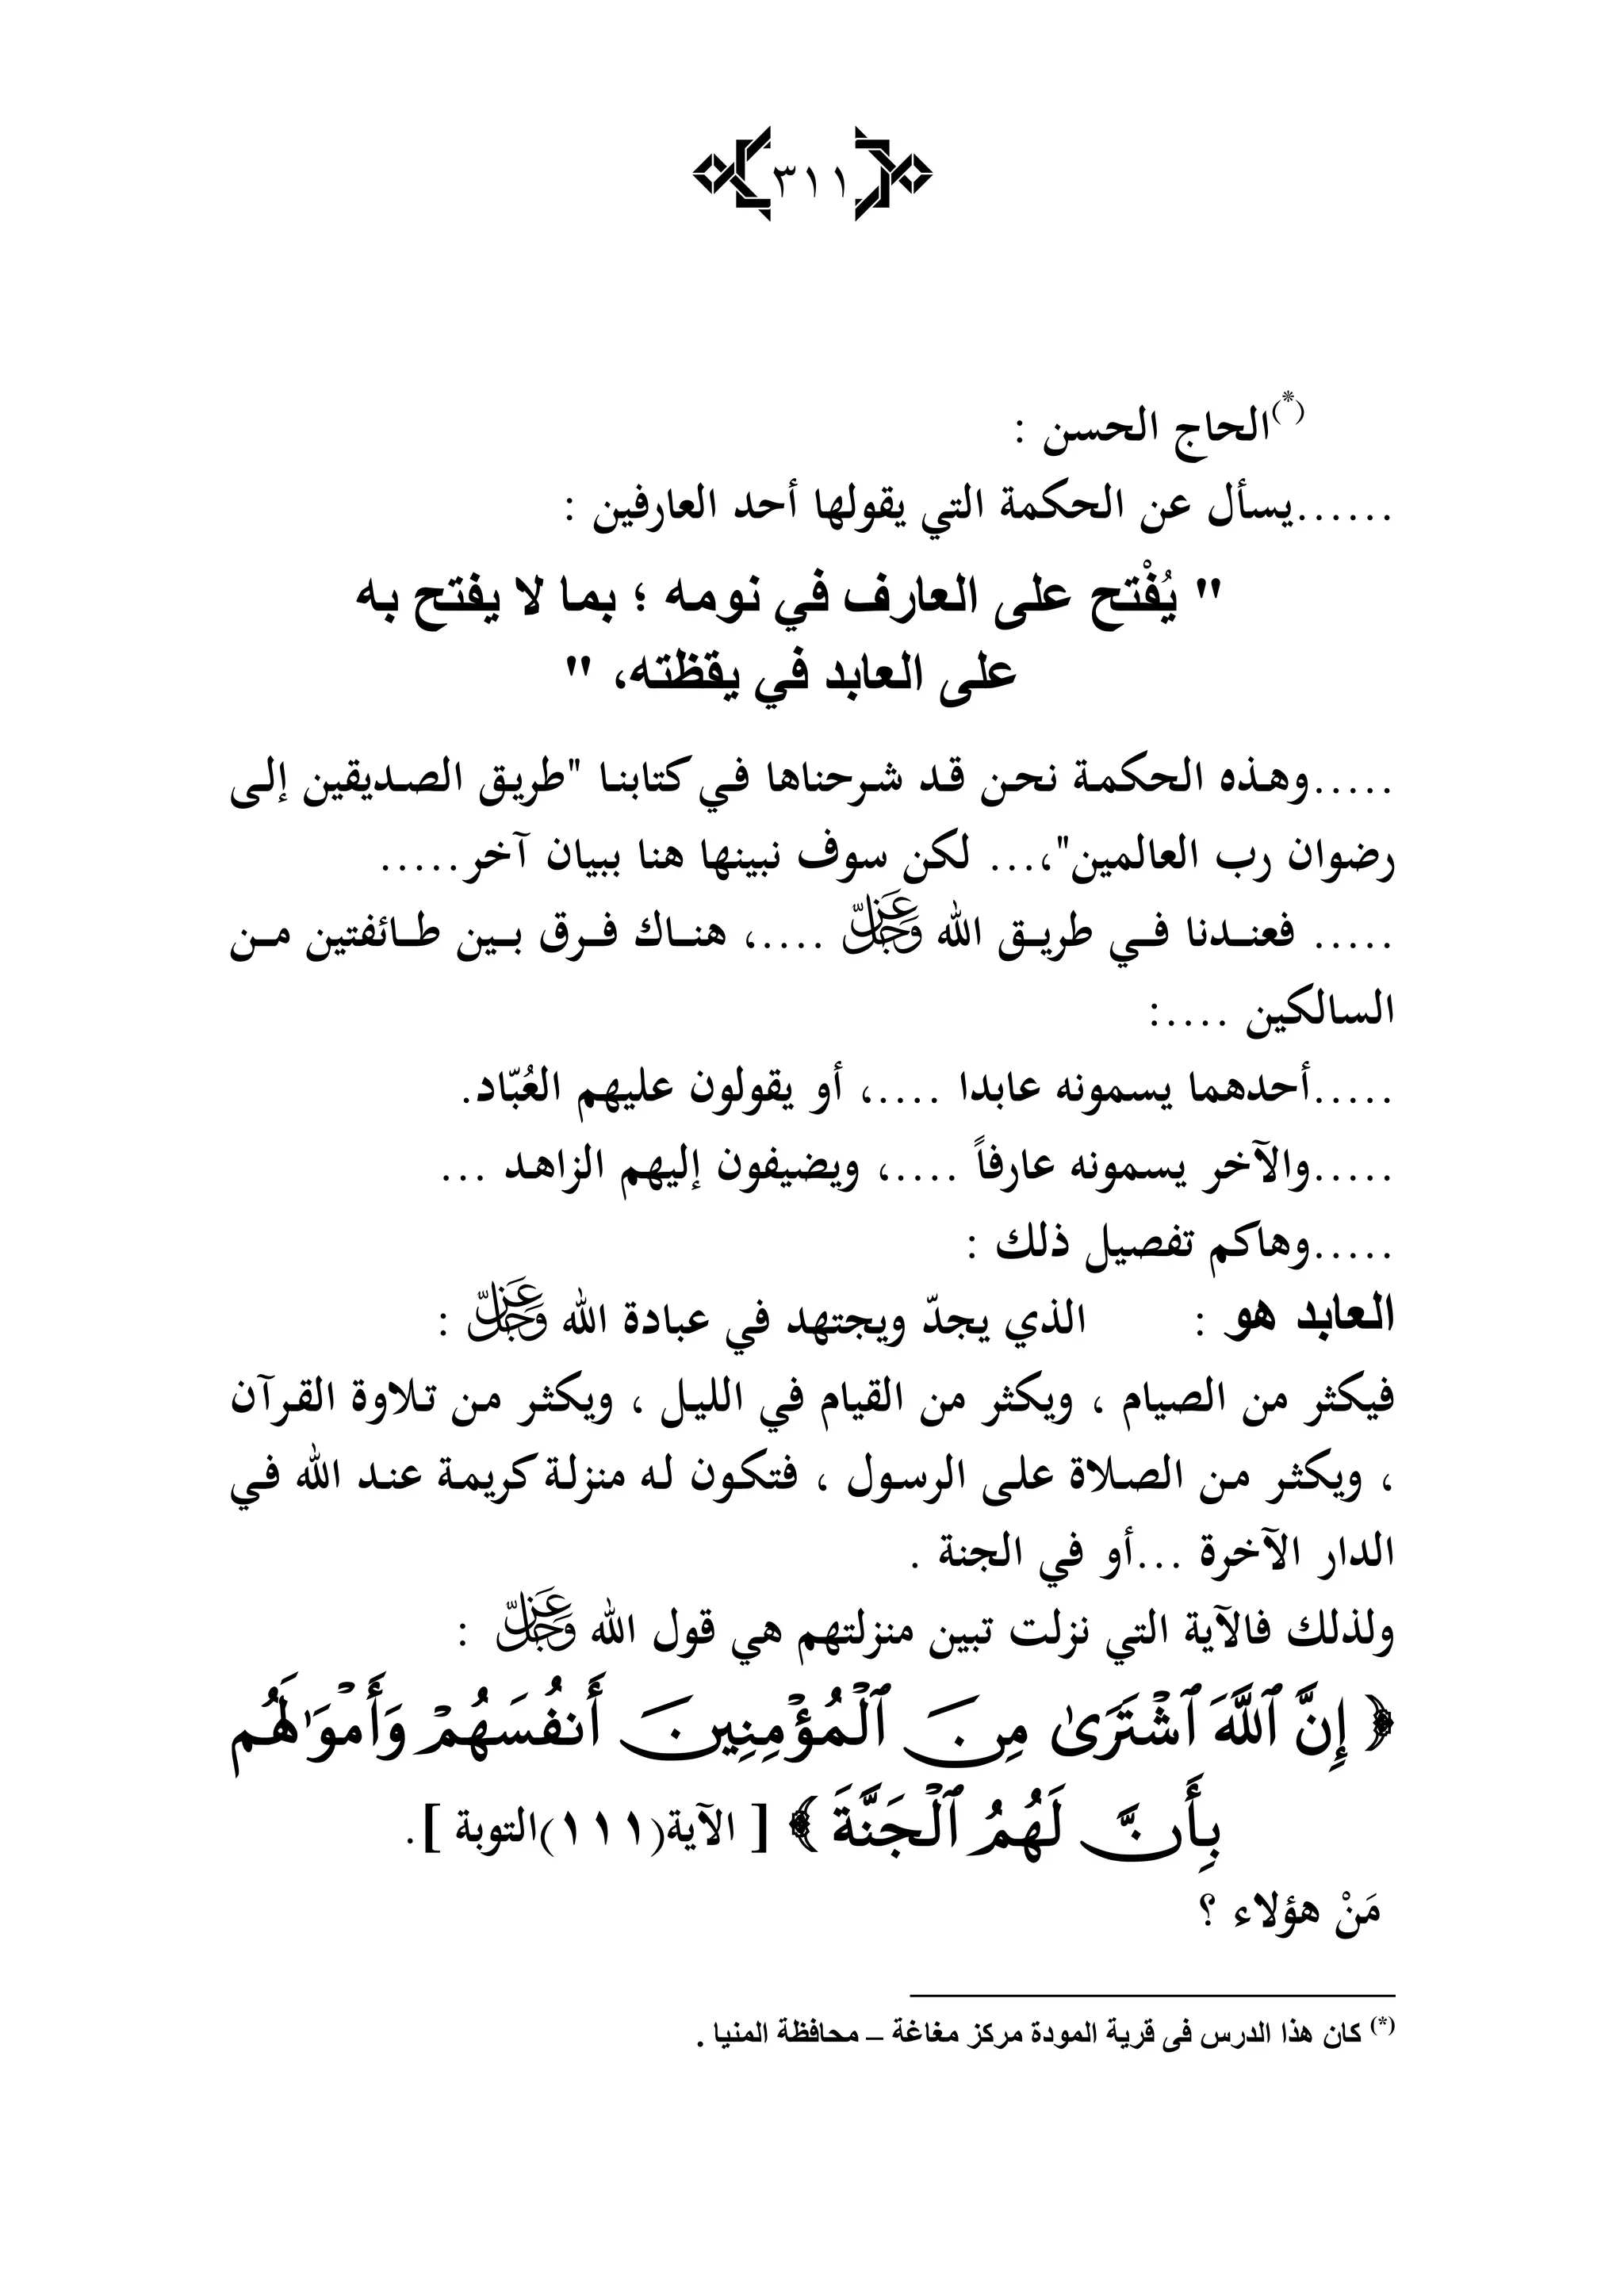 ٣١١
(*)الحاج الحسن :
......يسأل عن الحكمة التي يقولها أحد العارفين :
" يُفْتح على العارف في نومه ؛ بما لا يفتح به
على العابد في يقظته، "
.....وهذه الحكمة نحن قد شرحناها في كتابنا "طريق الصديقين إلى
رضوان رب العالمين"،... لكن سوف نبينها هنا ببيان آخر.....
..... فعندنا في طريق الله عزّ وجلّ ....، هناك فرق بين طائفتين من
السالكين ....:
.....أحدهما يسمونه عابدا ....، أو يقولون عليهم العُبّاد.
.....والآخر يسمونه عارفاً ....، ويضيفون إليهم الزاهد ...
.....وهاكم تفصيل ذلك :
العابد هو : الذي يجدّ ويجتهد في عبادة الله عزّ وجلّ :
فيكثر من الصيام ، ويكثر من القيام في الليل ، ويكثر من تلاوة القرآن
، ويكثر من الصلاة على الرسول ، فتكون له منزلة كريمة عند الله في
الدار الآخرة ...أو في الجنة .
ولذلك فالآية التي نزلت تبين منزلتهم هي قول الله عزّ وجلّ :
﴿ إِنَّ ٱللَّهَ ٱشۡتَرَىٰ مِنَ ٱلۡمُؤۡمِنِينَ أَنفُسَهُمۡ وَأَمۡوَٰلَهُم
بِأَنَّ لَهُمُ ٱلۡجَنَّةَ ﴾ [ الآية(١١١)التوبة ].
مَنْ هؤلاء ؟
(*) كان هذا الدرس فى قرية المودة مركز مغاغة – محافظة المنيا .